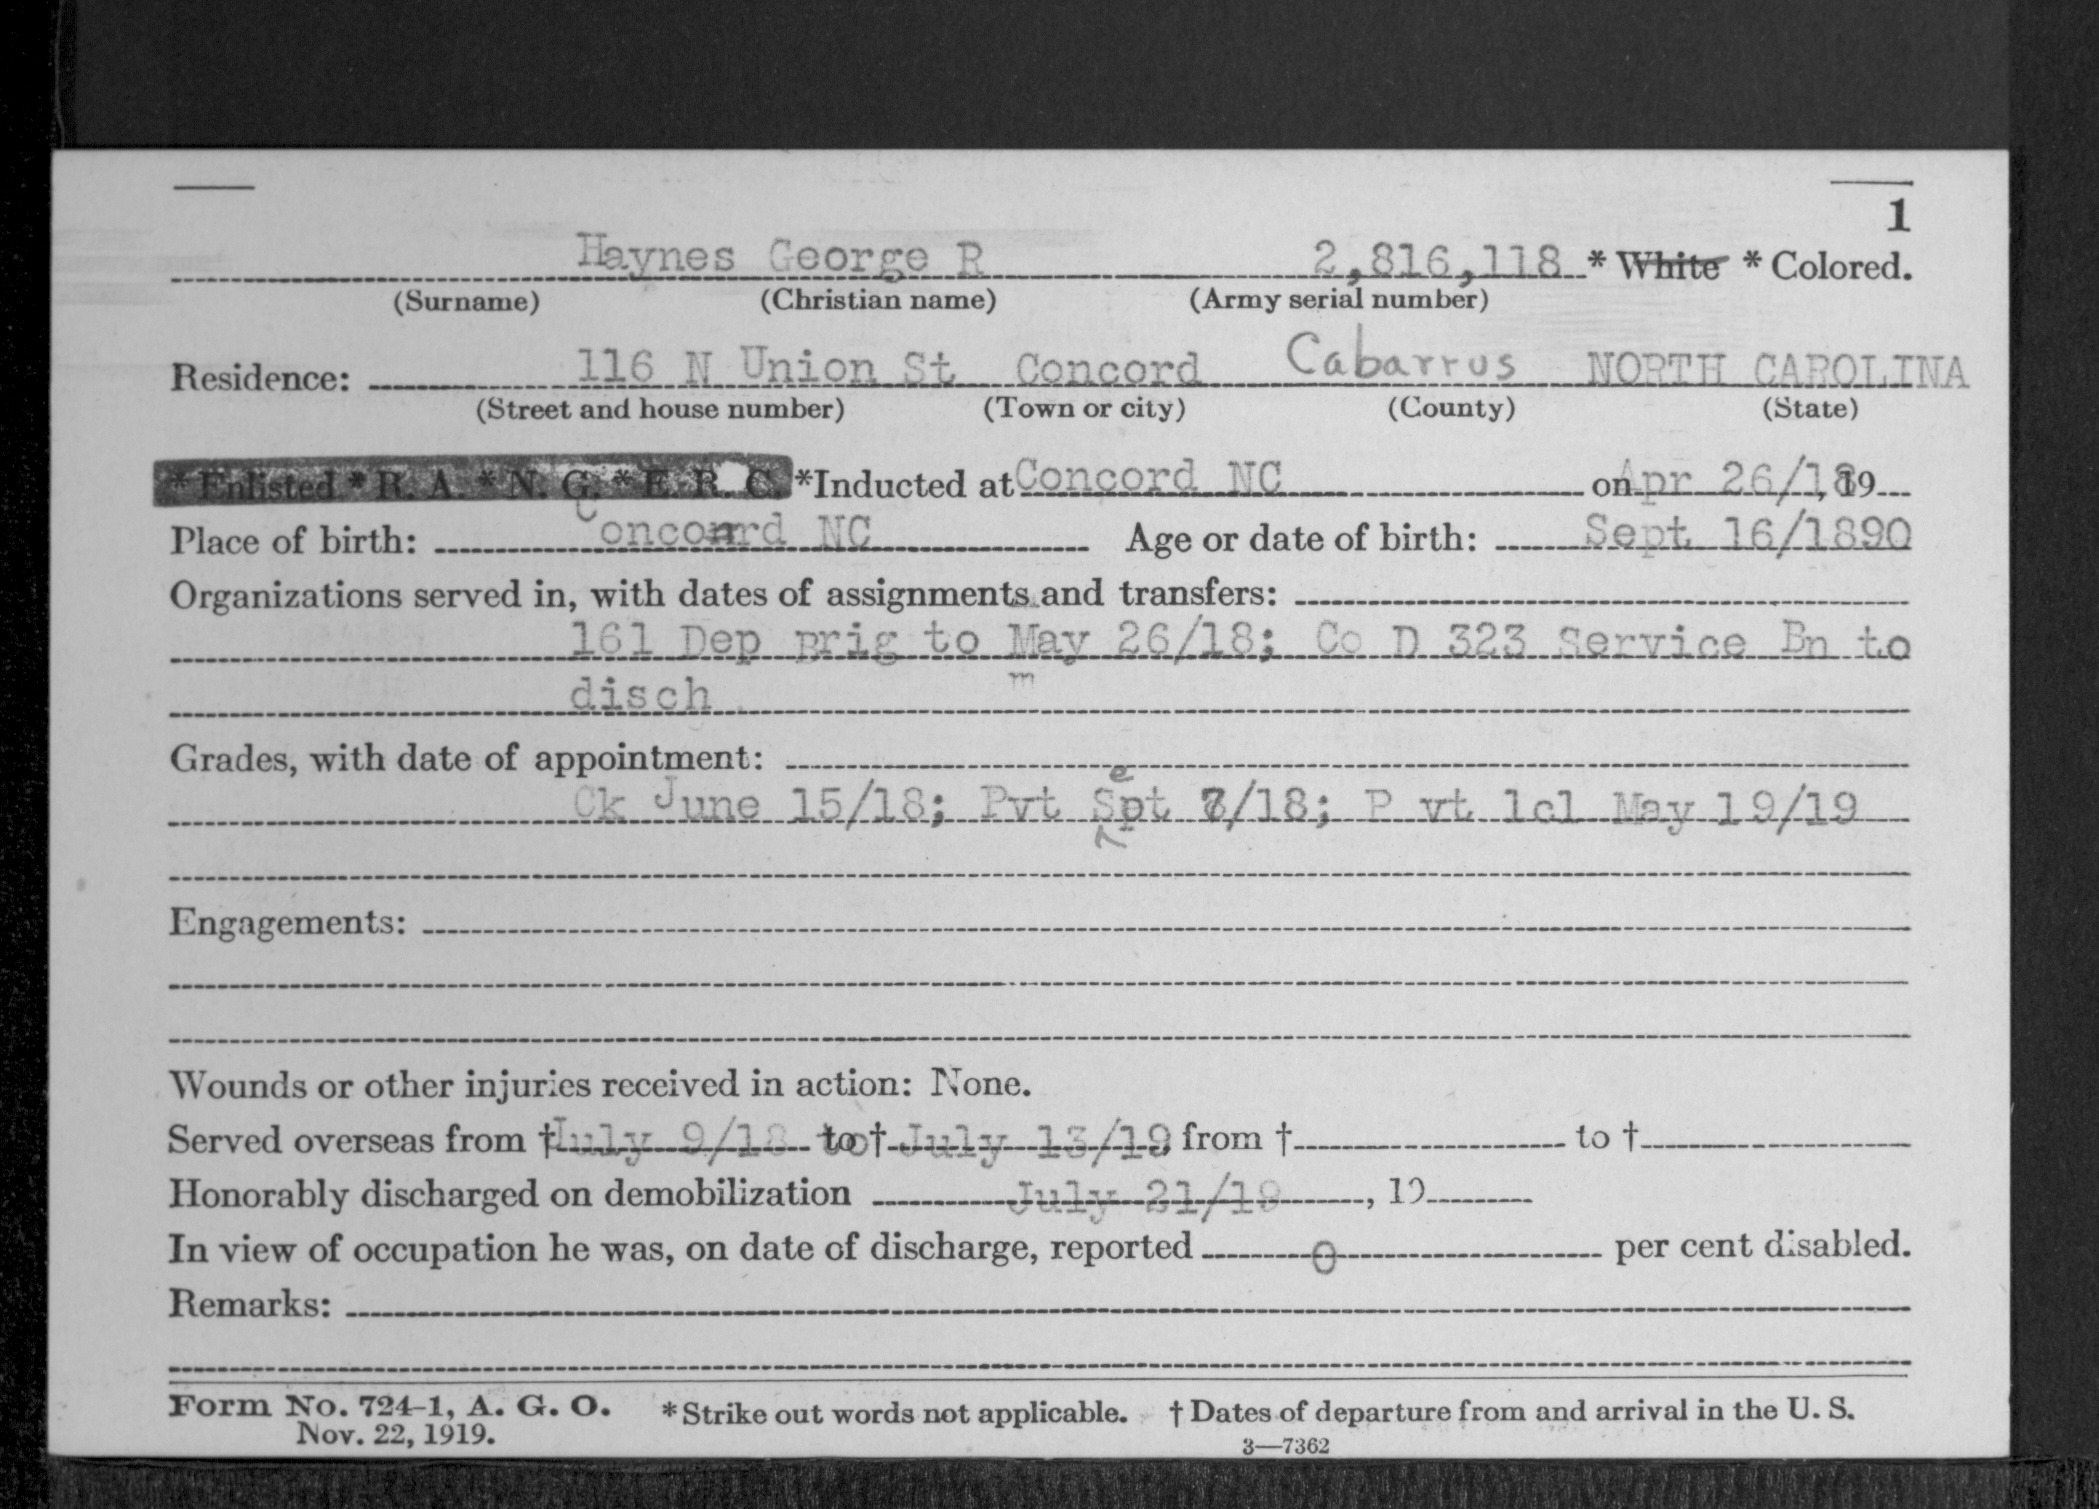 1
Haynes George R 2,816,118 * White * Colored.
(Surname) (Christian name) (Army serial number)
Residence: 116 N Union St Concord Cabarrus NORTH CAROLINA
(Street and house number) (Town or city) (County) (State)
* Enlisted * R. A. * N. G. * E. R. C. *Inducted at Concord NC on Apr 26/18, 19
Place of birth: Concord NC Age or date of birth: Sept 16/1890
Organizations served in, with dates of assignments and transfers:
161 Dep Brig to May 26/18; Co D 323 Service Bn to
disch
Grades, with date of appointment:
Ck June 15/18; Pvt Sept /18; P vt 1cl May 19/19
Engagements:
Wounds or other injuries received in action: None.
Served overseas from † July 9/18 to † July 13/19, from † to †
Honorably discharged on demobilization July 21/19, 19
In view of occupation he was, on date of discharge, reported 0 per cent disabled.
Remarks:
Form No. 724-1, A. G. O. * Strike out words not applicable. † Dates of departure from and arrival in the U. S.
Nov. 22, 1919. 3—7362